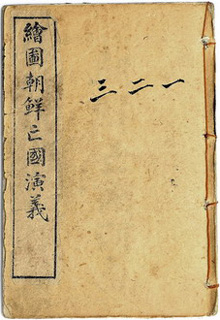 繪圖朝鮮亡國演義
一二三